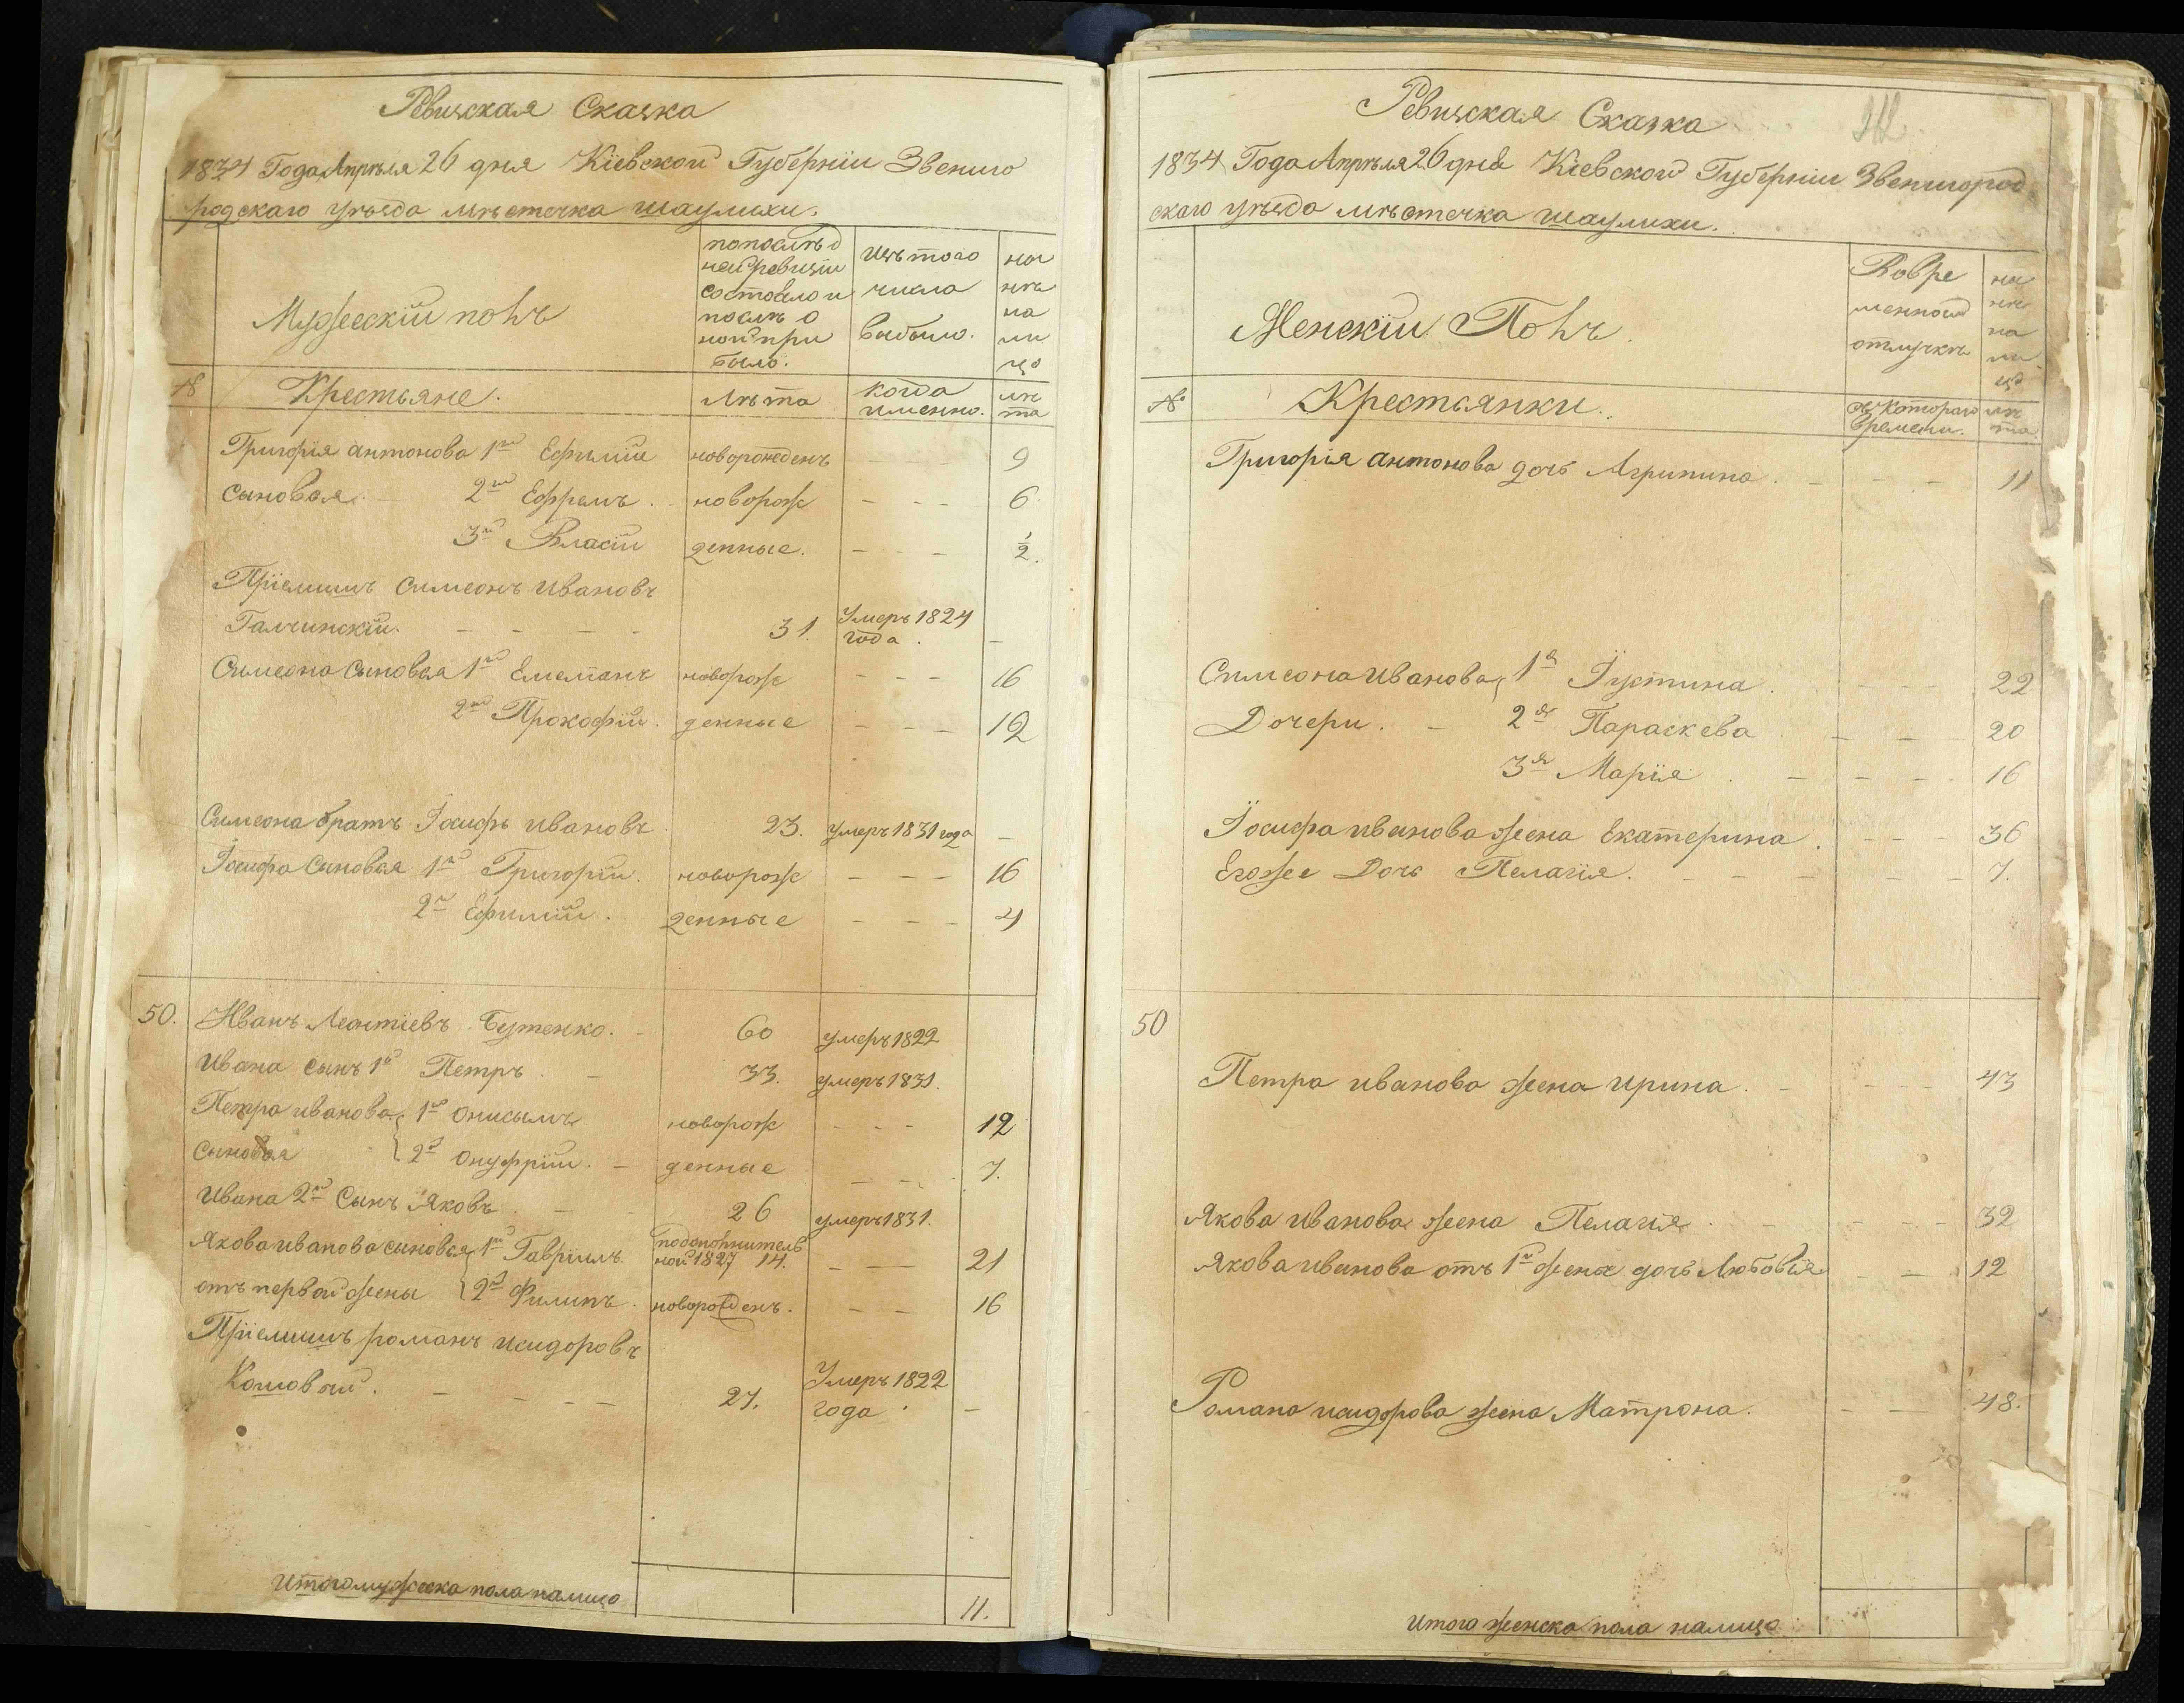 Ревизская Сказка
1834 Года Апрѣля 26 дня Кіевской Губерніи Звениго
родскаго уѣзда мѣстечка шаулихи.
Мужескій полъ
по послѣд
ней ревизіи
состояло и
послѣ о
ной при
было.
Изъ того
числа
выбыло.
ны
нѣ
на
ли
цо
№
Крестьяне.
Лѣта
когда
именно.
лѣ
та
Григорія антонова 1й Ефимій новорожденъ - - - 9
сыновья. 2й Ефремъ. новорож - - - 6
3й Власій денные. - - - 1/2.
Пріемышъ Симеонъ Ивановъ
Галчинскій. - - - - 31. Умеръ 1824
года. -
Симеона сыновья 1й Емеліанъ новорож - - - 16
2й Прокофій. денные - - - 12
Симеона братъ Іосифъ ивановъ. 23. умеръ 1831 года -
Іосифа сыновья 1й Григорій. новорож - - - 16
2й Ефимій. денные - - - 4
50. Иванъ Леонтіевъ Бутенко. - 60 умеръ 1822
Ивана сынъ 1й Петръ. - 33. умеръ 1831.
Петра иванова 1й Онисымъ новорож - - - 12
сыновья 2й Онуфрій. - денные - - - 7.
Ивана 2й Сынъ Яковъ - - 26 умеръ 1831.
Якова иванова сыновья 1й Гавріилъ подополнитель
ной 1827 14. - - 21
отъ первой жены 2й Филипъ. новорожденъ. - - 16
Пріемышъ романъ исидоровъ
Кошовый. - - - - 27. Умеръ 1822
года. -
Итого мужеска пола налицо 11.
Ревизская Сказка
212
1834 Года Апрѣля 26 дня Кіевской Губерніи Звенигород
скаго уѣзда мѣстечка шаулихи.
Женскій Полъ.
Вовре
менной
отлучкѣ
ны
нѣ
на
ли
цо
№
Крестьянки.
съ котораго
времени.
лѣ
та.
Григорія антонова дочь Агрипина. - - - 11
Симеона Иванова 1я Іустина. - - - 22
Дочери. - 2я Параскева - - 20
3я Марія. - - - 16
Іосифа иванова жена Екатерина. - - 36
Егоже Дочь Пелагія. - - - - - 7.
50
Петра иванова жена ирина. - - - - 43
Якова Иванова жена Пелагія. - - - - 32
Якова иванова отъ 1й жены дочь Любовія - - 12
Романа исидорова жена Матрона. - - 48.
Итого женска пола налицо